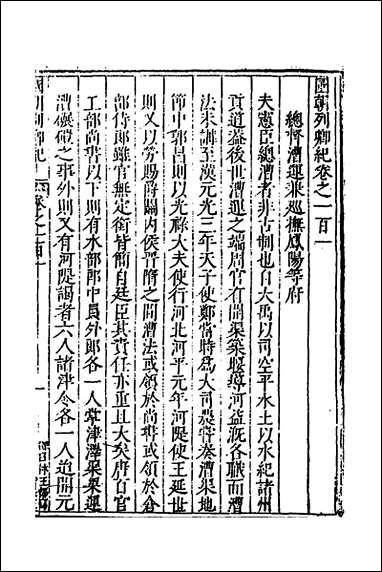 國朝列卿紀卷之一百一
總督漕運兼巡撫鳳陽等府
夫憲臣總漕者非古制也自大禹以司空平水土以水紀諸州
貢道蓋後世漕運之端周官有開渠築堰導河益溉各職而漕
法未講至漢元光三年天子使鄭當時為大司農嘗奏漕渠地
節中郭昌則以光祿大夫使行河北河平元年河隄使王延世
則又以勞賜爵關內侯晉隋之間漕法或領於尚書或領於倉
部侍郎雖官無定銜皆簡自廷臣其責任亦重且大矣唐自官
工部尚書以下則有水部郎中員外郎各一人掌津澤渠梁運
漕碾磑之事外則又有河隄謁者六人諸津令各一人迨開元